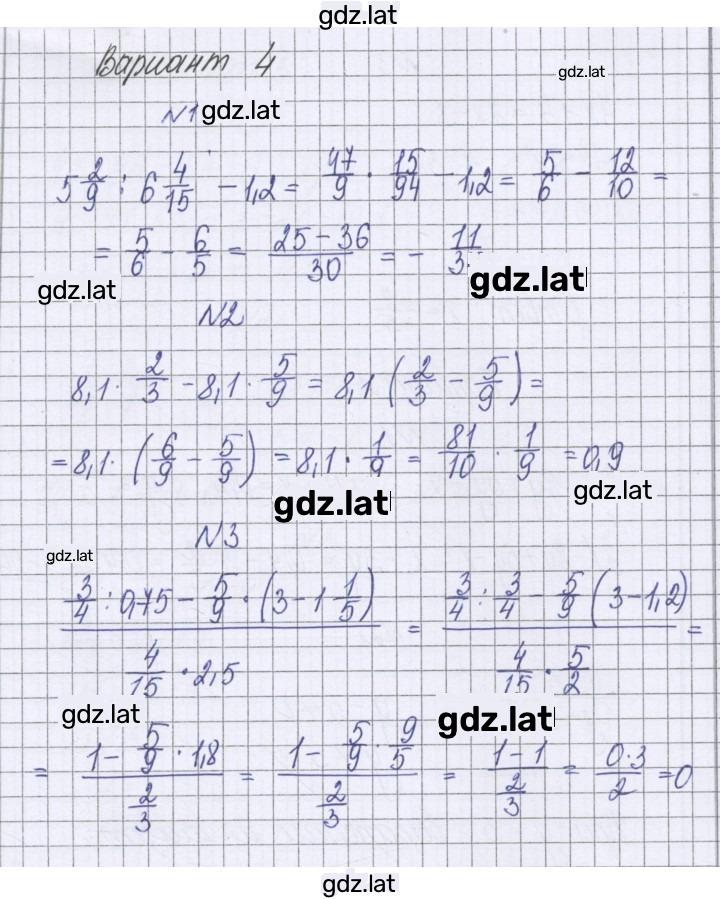 gdz.lat
Вариант 4
gdz.lat
№1 gdz.lat
5 2/9 : 6 4/15 - 1,2 = 47/9 · 15/94 - 1,2 = 5/6 - 12/10 =
= 5/6 - 6/5 = (25 - 36)/30 = - 11/3
gdz.lat
gdz.lat
№2
8,1 · 2/3 - 8,1 · 5/9 = 8,1 (2/3 - 5/9) =
= 8,1 · (6/9 - 5/9) = 8,1 · 1/9 = 81/10 · 1/9 = 0,9
gdz.lat
gdz.lat
№3
gdz.lat
(3/4 : 0,75 - 5/9 · (3 - 1 1/5))/(4/15 · 2,5) = (3/4 : 3/4 - 5/9 (3 - 1,2))/(4/15 · 5/2) =
gdz.lat
gdz.lat
= (1 - 5/9 · 1,8)/(2/3) = (1 - 5/9 · 9/5)/(2/3) = (1 - 1)/(2/3) = (0 · 3)/2 = 0
gdz.lat